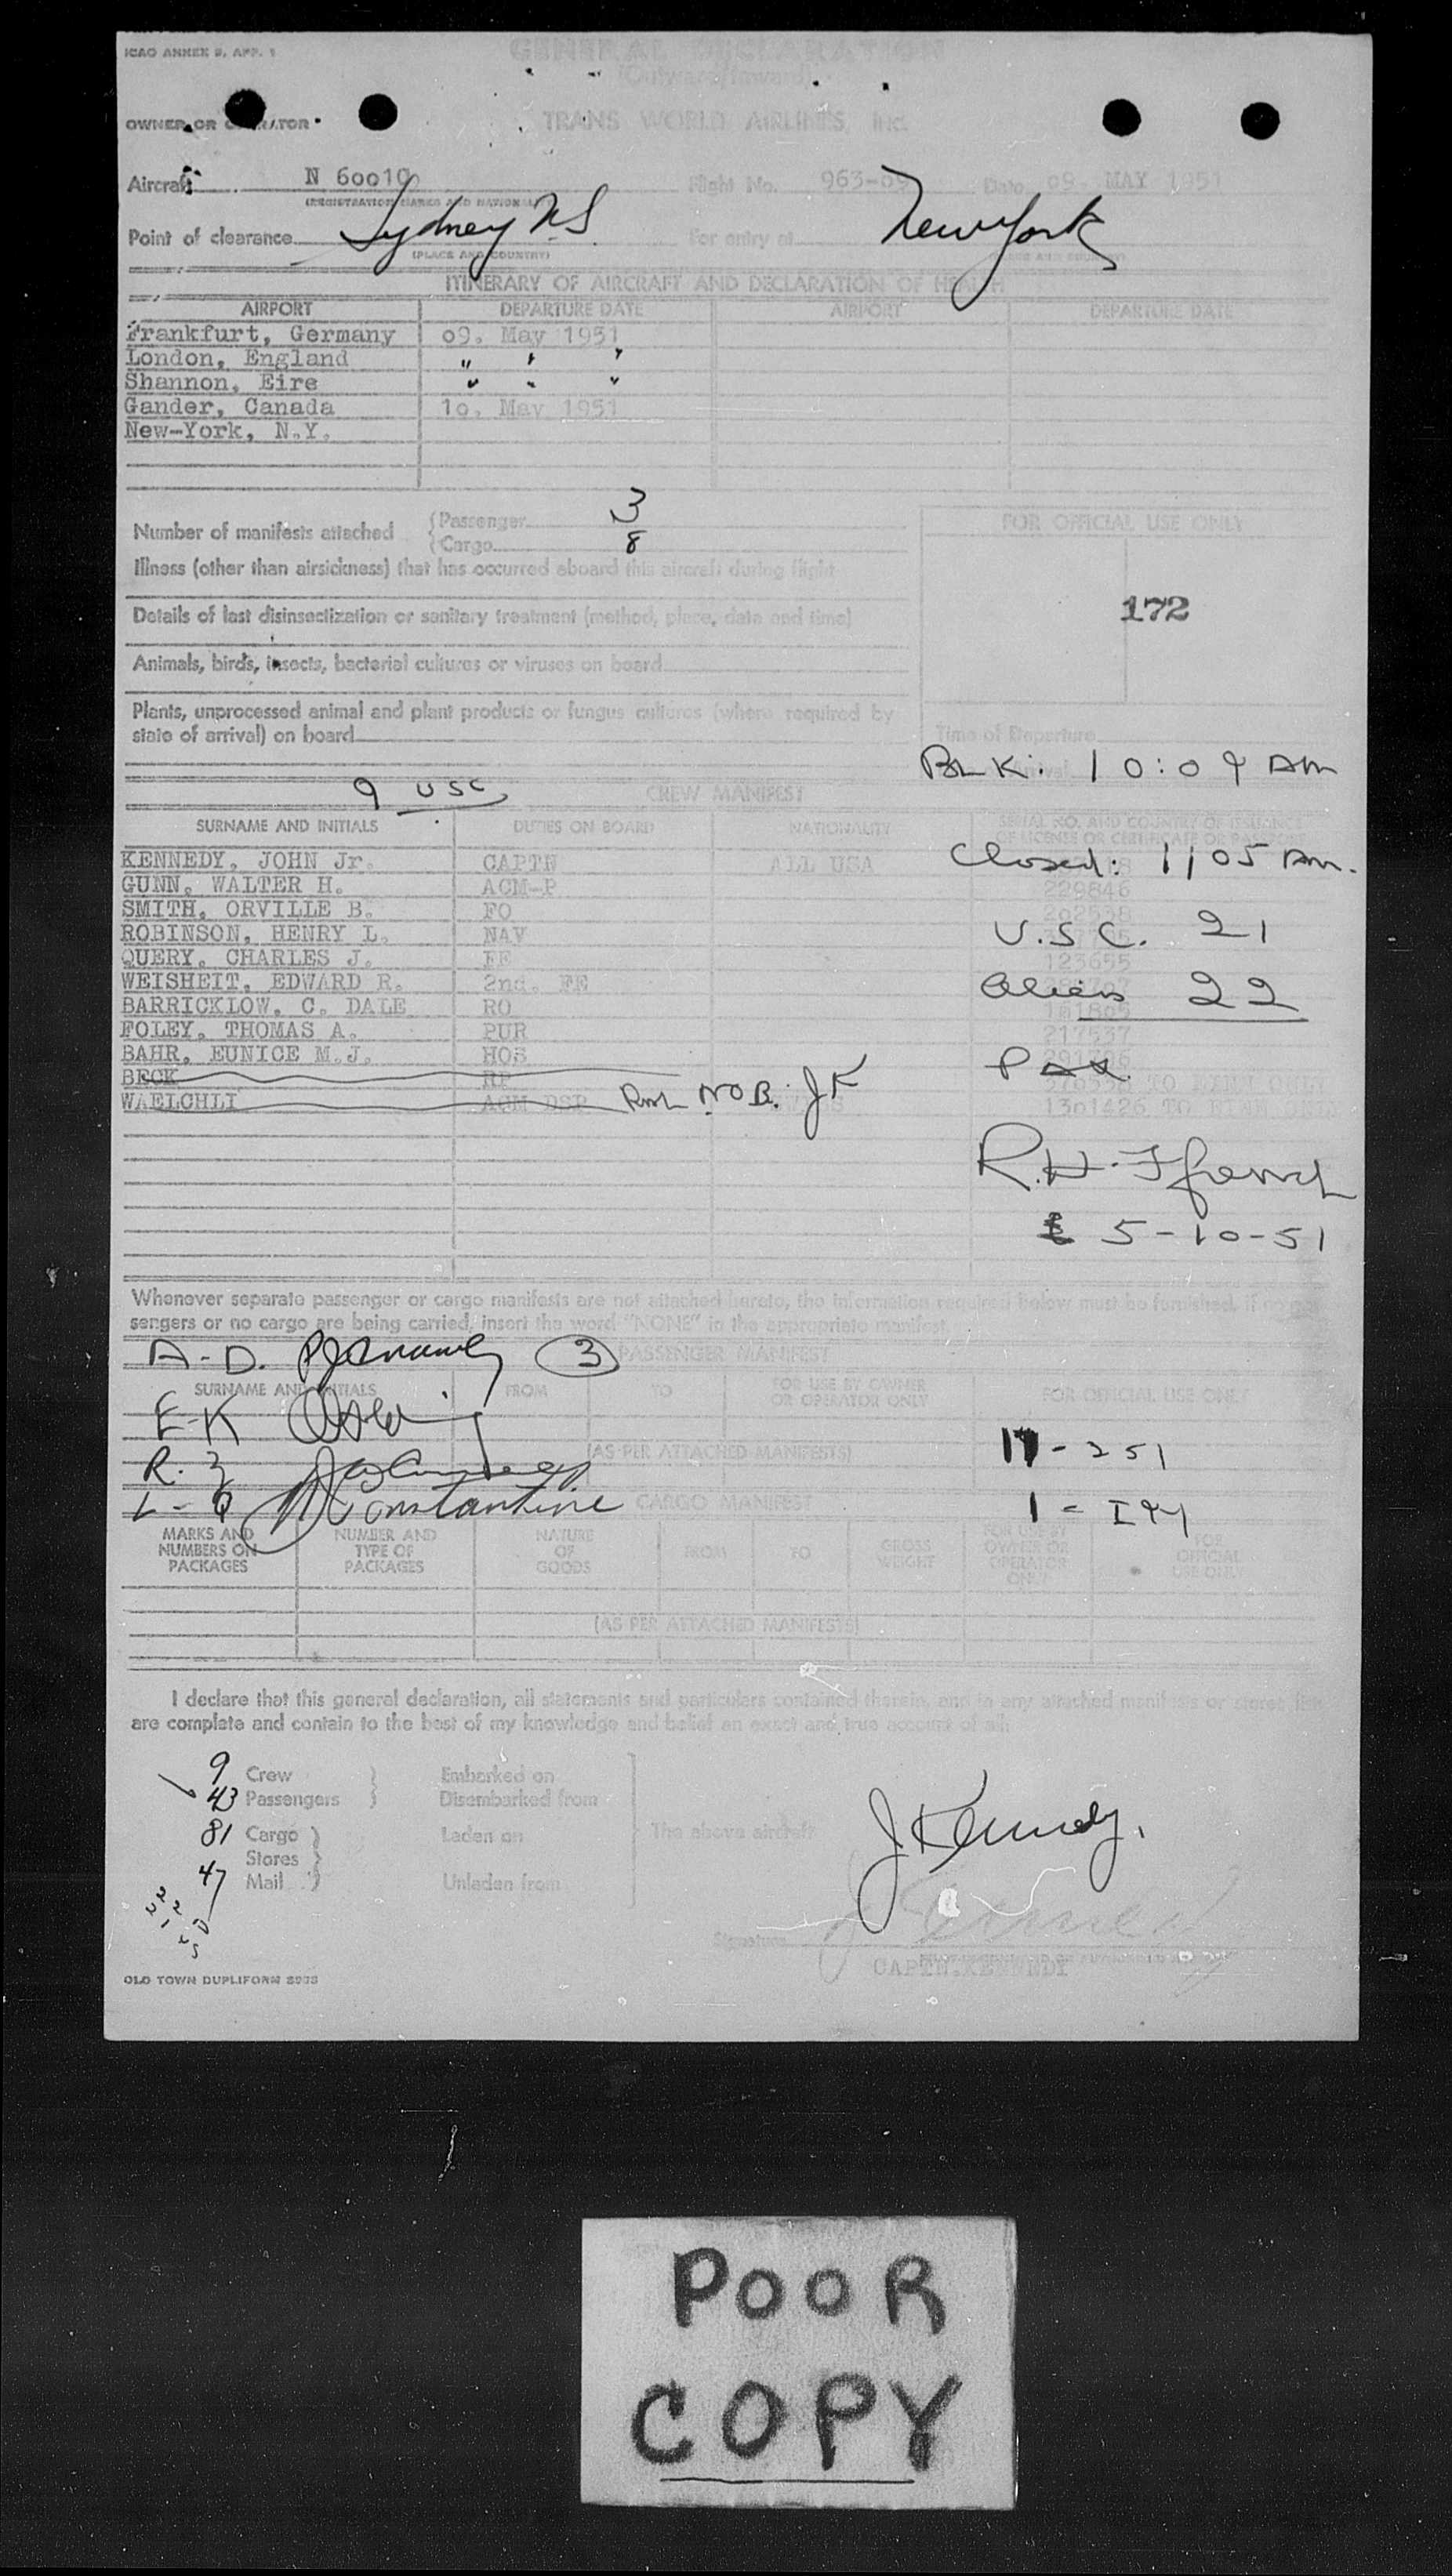 ICAO ANNEX 9, APP. 1
GENERAL DECLARATION
(Outward/Inward)
OWNER OR OPERATOR TRANS WORLD AIRLINES, Inc.
Aircraft N 60010 Flight No. 963-09 Date 09. MAY 1951
(REGISTRATION MARKS AND NATIONALITY)
Point of clearance Sydney N.S. For entry at New York
(PLACE AND COUNTRY) (PLACE AND COUNTRY)
ITINERARY OF AIRCRAFT AND DECLARATION OF HEALTH
AIRPORT DEPARTURE DATE AIRPORT DEPARTURE DATE
Frankfurt, Germany 09. May 1951
London, England " " "
Shannon, Eire " " "
Gander, Canada 10. May 1951
New-York, N.Y.
Number of manifests attached {Passenger 3
{Cargo 8
FOR OFFICIAL USE ONLY
Illness (other than airsickness) that has occurred aboard this aircraft during flight
172
Details of last disinsectization or sanitary treatment (method, place, date and time)
Animals, birds, insects, bacterial cultures or viruses on board
Plants, unprocessed animal and plant products or fungus cultures (where required by
state of arrival) on board
Time of Departure
Blk: 10:09 AM
9 USC
CREW MANIFEST
SURNAME AND INITIALS DUTIES ON BOARD NATIONALITY SERIAL NO. AND COUNTRY OF ISSUANCE
OF LICENSE OR CERTIFICATE OR PASSPORT
KENNEDY, JOHN Jr. CAPTN ALL USA
Closed: 1105 AM.
GUNN, WALTER H. ACM-P 229846
SMITH, ORVILLE B. FO
ROBINSON, HENRY L. NAV
U.S.C. 21
QUERY, CHARLES J. FE 123655
WEISHEIT, EDWARD R. 2nd. FE
Aliens 22
BARRICKLOW, C. DALE RO
FOLEY, THOMAS A. PUR 217537
BAHR, EUNICE M.J. HOS
Pax
BECK RP TO FINN ONLY
WAELCHLI ACM DSP NOB. JK 1301426 TO FINN ONLY
R.H. Ffrench
5-10-51
Whenever separate passenger or cargo manifests are not attached hereto, the information required below must be furnished, if no pas-
sengers or no cargo are being carried, insert the word "NONE" in the appropriate manifest.
A-D. 3 PASSENGER MANIFEST
SURNAME AND INITIALS FROM TO FOR USE BY OWNER
OR OPERATOR ONLY FOR OFFICIAL USE ONLY
E-K
(AS PER ATTACHED MANIFESTS) 11-251
R.Z
L-Q Constantine CARGO MANIFEST 1-I94
MARKS AND
NUMBERS ON
PACKAGES NUMBER AND
TYPE OF
PACKAGES NATURE
OF
GOODS FROM TO GROSS
WEIGHT FOR USE BY
OWNER OR
OPERATOR
ONLY FOR
OFFICIAL
USE ONLY
(AS PER ATTACHED MANIFESTS)
I declare that this general declaration, all statements and particulars contained therein, and in any attached manifests or stores lists
are complete and contain to the best of my knowledge and belief an exact and true account of all:
9 Crew Embarked on
43 Passengers Disembarked from
81 Cargo Laden on The above aircraft
Stores
47 Mail Unladen from
J Kennedy.
Signature
CAPTN.KENNNDY
OLD TOWN DUPLIFORM
POOR
COPY